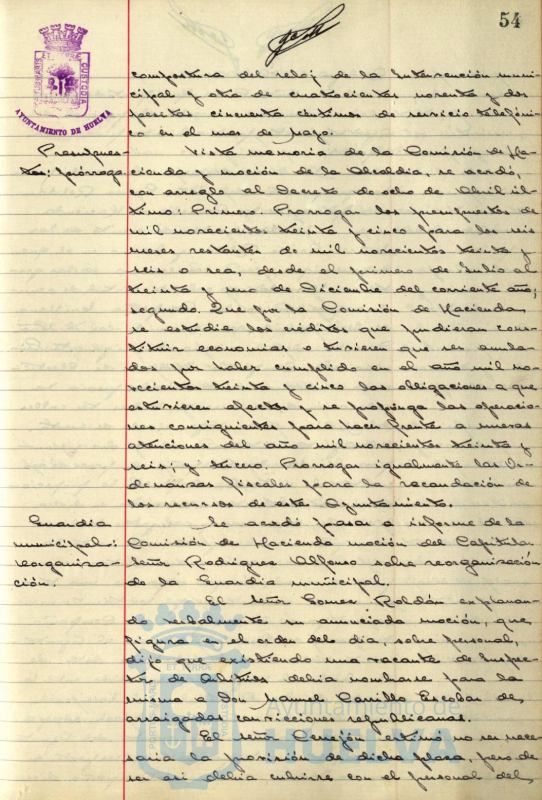 54
AYUNTAMIENTO DE HUELVA
compostura del reloj de la Intervención muni-
cipal y otra de cuatrocientas noventa y dos
pesetas cincuenta céntimos de servicio telefóni-
co en el mes de Mayo.
Presupues-
tos: prórroga.
Vista memoria de la Comisión de Ha-
cienda y moción de la Alcaldia, se acordó,
con arreglo al Decreto de ocho de Abril úl-
timo: Primero. Prorrogar los presupuestos de
mil novecientos treinta y cinco para los seis
meses restantes de mil novecientos treinta y
seis o sea, desde el primero de Julio al
treinta y uno de Diciembre del corriente año;
segundo. Que por la Comisión de Hacienda
se estudie los créditos que pudieran cons-
tituir economias o tuvieren que ser anula-
dos por haber cumplido en el año mil no-
vecientos treinta y cinco las obligaciones a que
estuvieren afectos y se proponga las operacio-
nes consiguientes para hacer frente a nuevas
atenciones del año mil novecientos treinta y
seis; y tercero. Prorrogar igualmente las Or-
denanzas fiscales para la recaudación de
los recursos de este Ayuntamiento.
Guardia
municipal:
reorganiza-
ción.
Se acordó pasar a informe de la
Comisión de Hacienda moción del Capitular
Señor Rodriguez Alfonso sobre reorganización
de la Guardia municipal.
El Señor Gomez Roldán explanan-
do verbalmente su anunciada moción, que
figura en el orden del dia, sobre personal,
dijo que existiendo una vacante de Inspec-
tor de Arbitrios debia nombrarse para la
misma a Don Manuel Carrillo Escobar de
arraigadas convicciones republicanas.
El señor Cerrejón estimó no ser nece-
saria la provisión de dicha plaza, pero de
ser asi debia cubrirse con el personal del
Ayuntamiento de
HUELVA